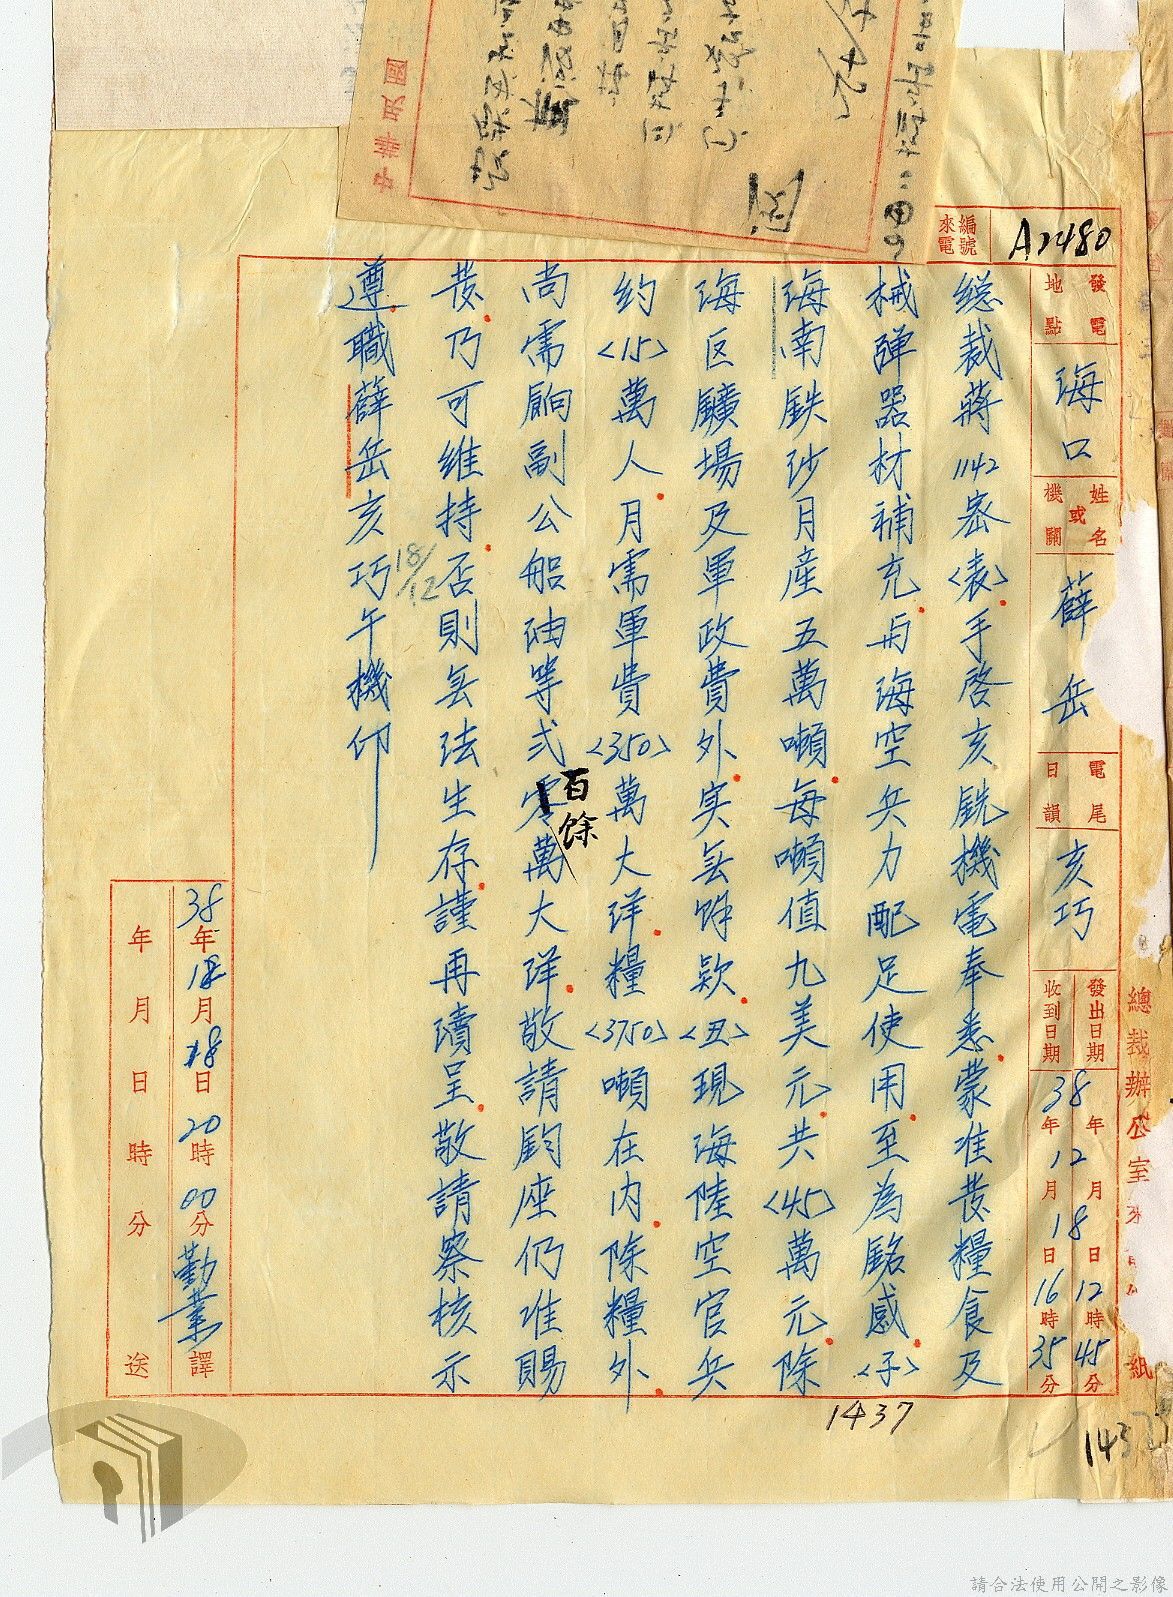 中華民國
來電編號 A2480
發電地點 海口
姓名或機關 薛岳
電尾日韻 亥巧
發出日期 38年12月18日12時45分
收到日期 年月日16時35分
總裁辦公室 紙
总裁蔣1142密<表>手啓亥銑機電奉悉蒙准发糧食及
械弹器材補充与海空兵力配足使用至為銘感<子>
海南鉄砂月產五萬噸每噸值九美元共<45>萬元除
海区鑛場及軍政費外実无餘欵<丑>現海陸空官兵
約<15>萬人月需軍費<350>萬大洋糧<3750>噸在內除糧外
尚需餉副公船油等弍百餘萬大洋敬請鈞座仍准賜
发乃可維持否則无法生存謹再瀆呈敬請察核示
遵職薛岳亥巧午機印
18/12
38年12月18日20時00分勤業譯
年月日時分送
1437
1437
請合法使用公開之影像